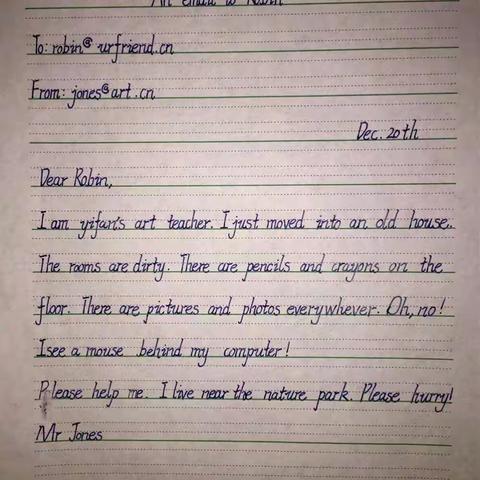 An email to Robin
To: robin@urfriend.cn
From: jones@art.cn
Dec. 20th
Dear Robin,
I am yifan's art teacher. I just moved into an old house.
The rooms are dirty. There are pencils and crayons on the
floor. There are pictures and photos everywhever. Oh, no!
I see a mouse behind my computer!
Please help me. I live near the nature park. Please hurry!
Mr Jones